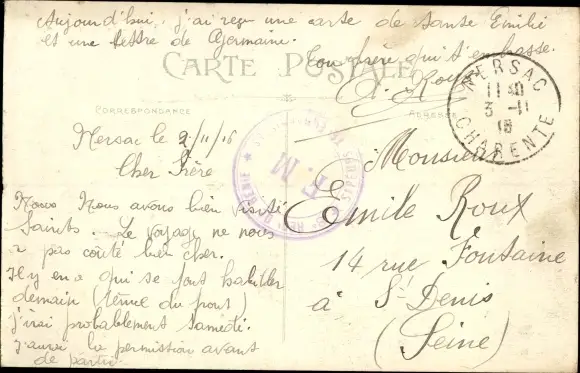 Aujourd'hui, j'ai reçu une carte de tante Emilie
et une lettre de Germaine.
Ton frère qui t'embrasse.
A. Roux
CARTE POSTALE
CORRESPONDANCE
ADRESSE
NERSAC
11 30
3 - 11
15
CHARENTE
F. M
GENIE
Nersac le 2/11/15
Cher Frère
Nous Nous avons bien visité
Saintes. Le voyage ne nous
a pas coûté bien cher.
Il y en a qui se font habiller
demain (tenue du front)
j'irai probablement samedi.
J'aurai la permission avant
de partir.
Monsieur
Emile Roux
14 rue Fontaine
à St Denis
(Seine)